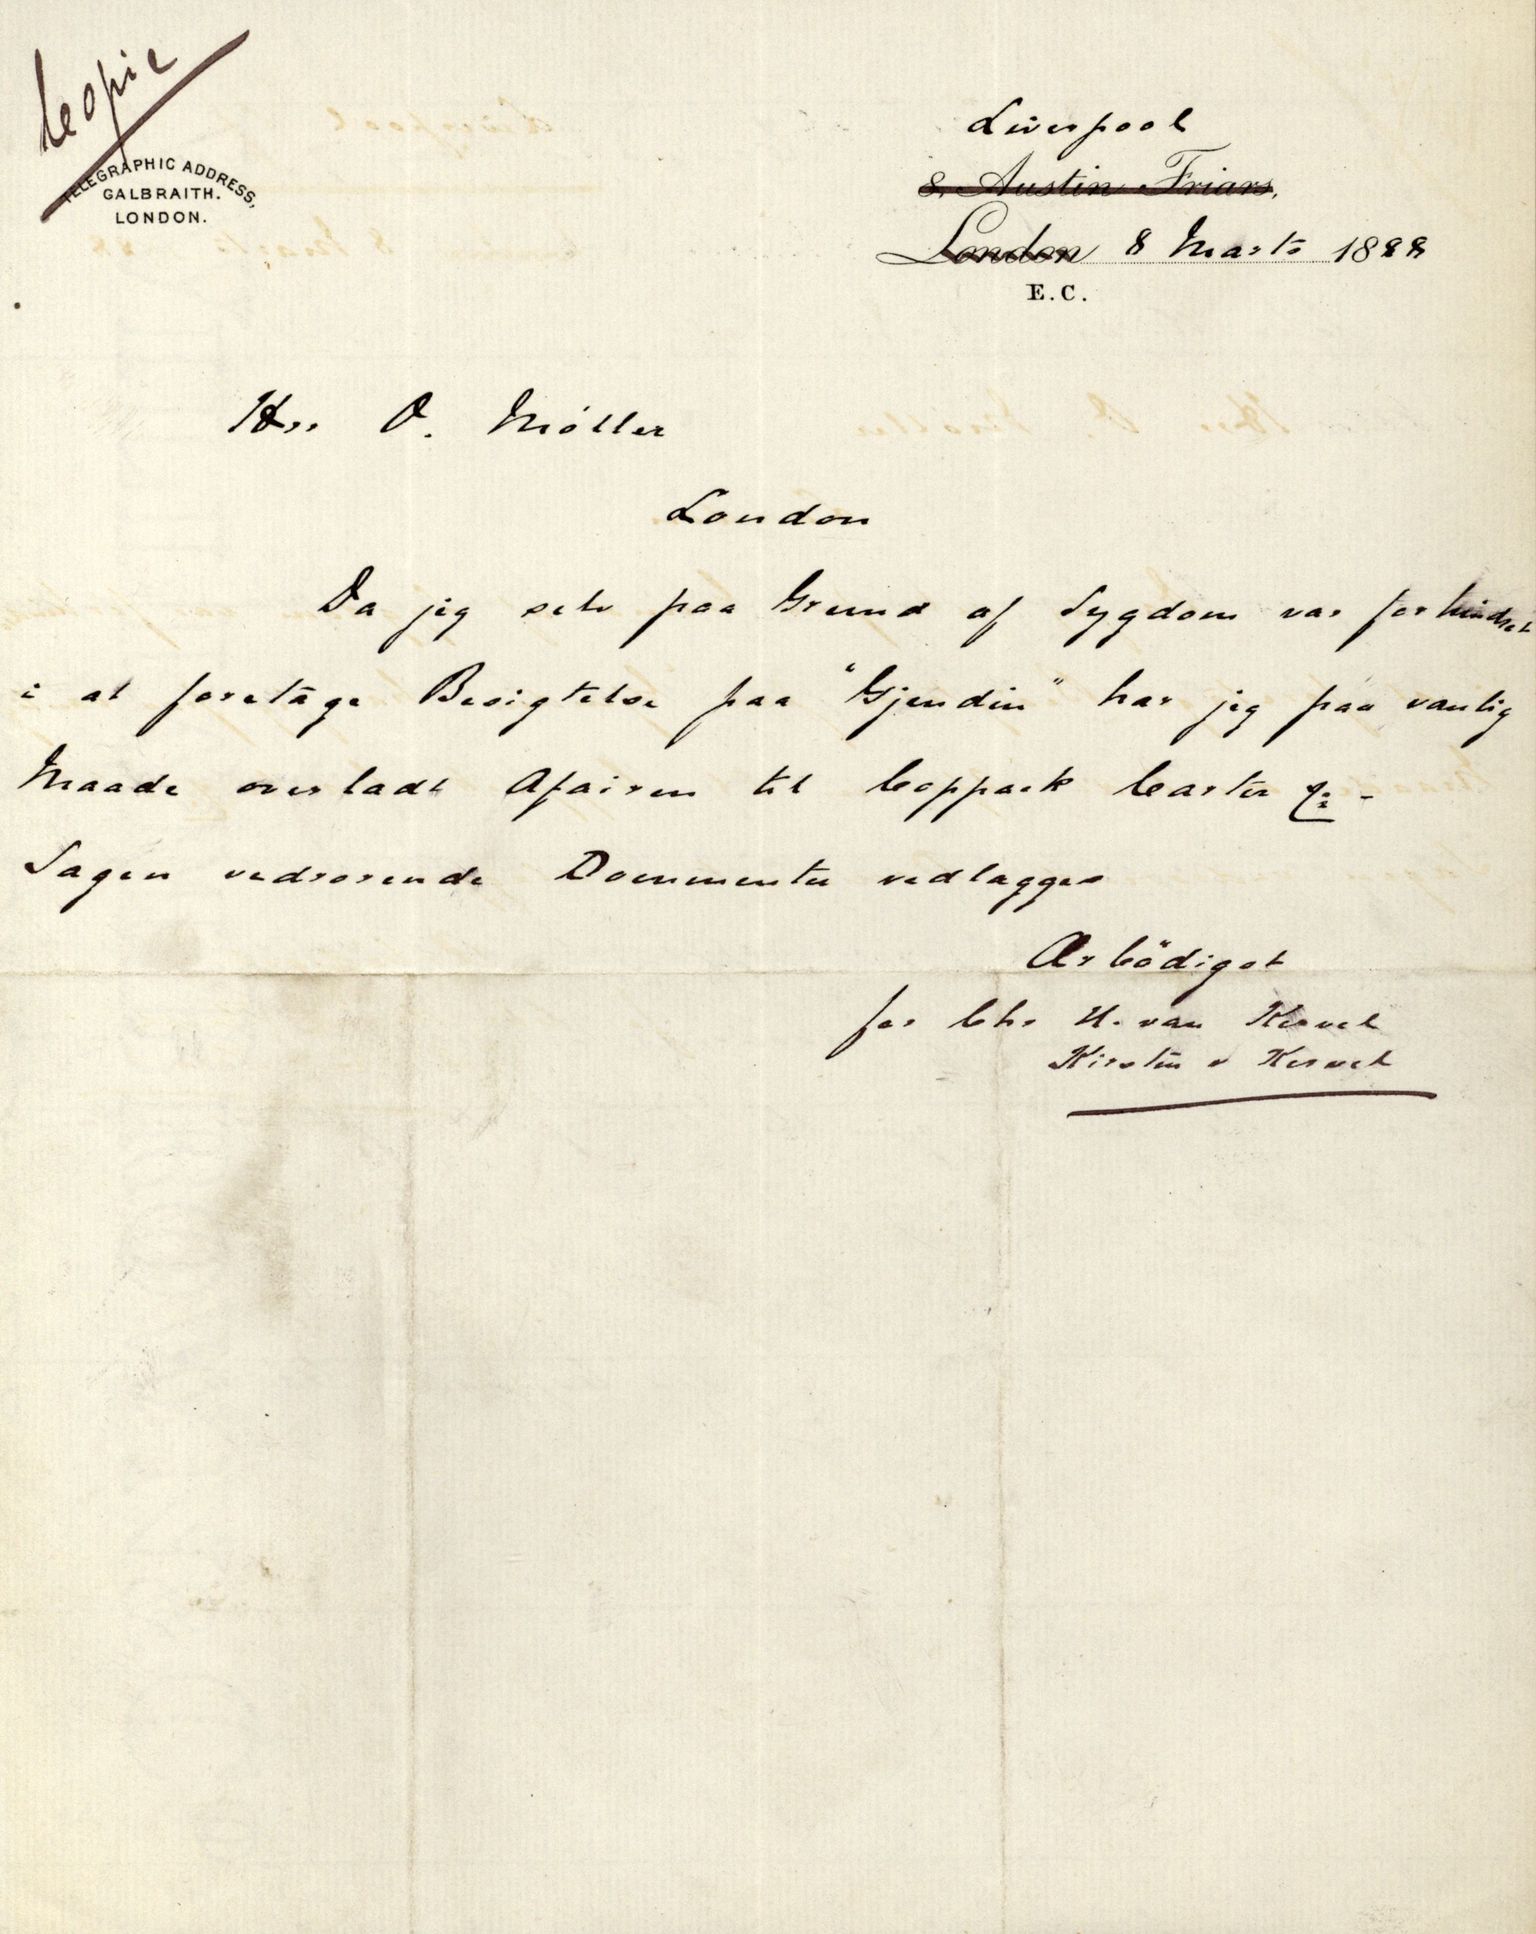 Copie
TELEGRAPHIC ADDRESS,
GALBRAITH.
LONDON.
Liverpool
8, Austin Friars,
London 8 Marts 1888
E.C.
Hrr O. Möller
London
Da jeg selv paa Grund af Sygdom var forhindret
i at foretage Besigtelse paa "Gjendin" har jeg paa vanlig
Maade overladt Afairen til Coppack Carter
Sagen vedrorende Documenter vedlægges
Ærbödigst
for Chr H. van Kervel
Kirsten v Kervel